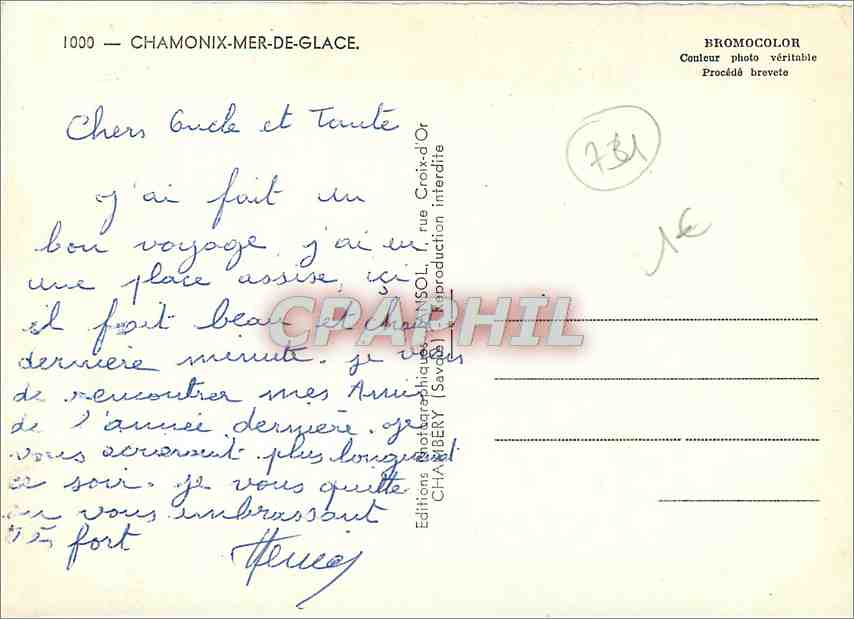 1000 — CHAMONIX-MER-DE-GLACE.
BROMOCOLOR
Couleur photo véritable
Procédé breveté
731
1€
Chers Oncle et Tante
J'ai fait un
bon voyage, j'ai eu
une place assise, içi
il fait beau et chaud
dernière minute. je viens
de rencontrer mes Amis
de l'année dernière. je
vous
plus longuement
ce soir. je vous quitte
en vous embrassant
très fort
Editions Photographiques ANSOL, 1, rue Croix-d'Or
CHAMBERY (Savoie) Reproduction interdite
CPAPHIL